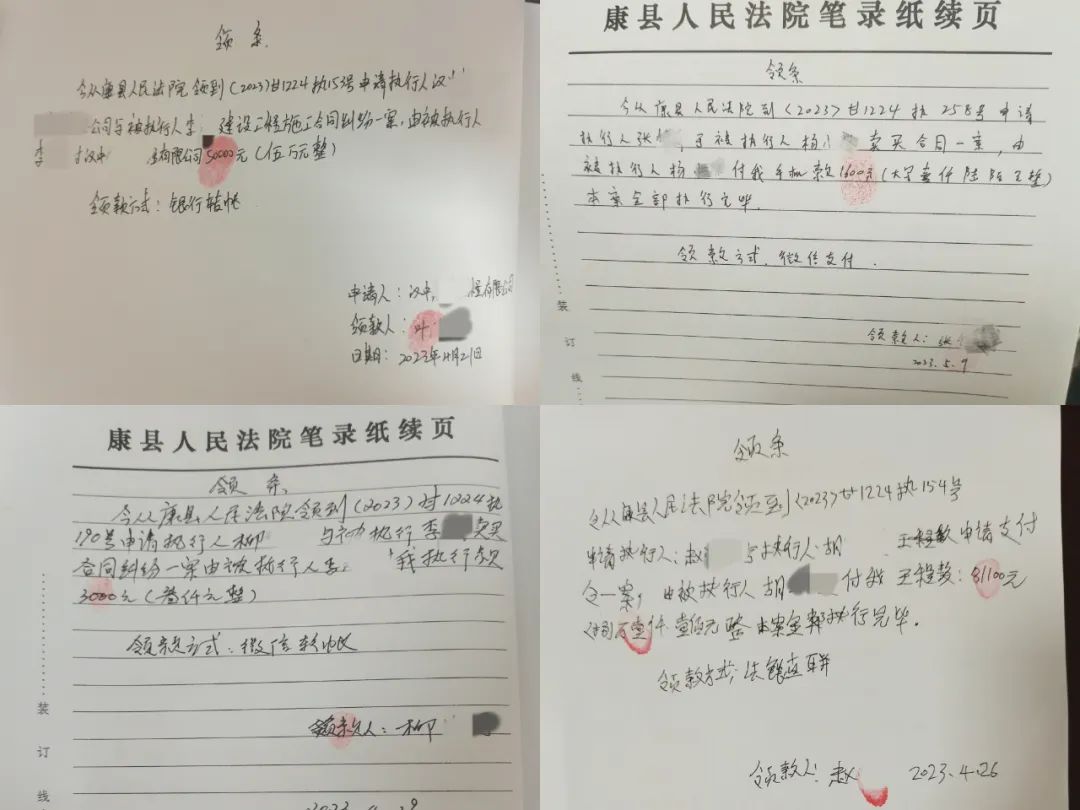 领条
今从康县人民法院领到(2023)甘1224执153号申请执行人汉
公司与被执行人李 建设工程施工合同纠纷一案,由被执行人
李 付汉中 有限公司50000元(伍万元整)
领款方式:银行转帐
申请人:汉中 程有限公司
领款人:叶
日期:2023年4月21日
康县人民法院笔录纸续页
领条
今从康县人民法院到(2023)甘1224执258号申请
执行人张 于被执行人杨小 卖买合同一案,由
被执行人杨 付我手机款1600元(大写壹仟陆佰元整)
本案全部执行完毕。
领款方式.微信支付.
领款人:张
2023.5.9
装
订
线
康县人民法院笔录纸续页
领条
今从康县人民法院领到(2023)甘1224执
190号申请执行人柳 与被执行李 卖买
合同纠纷一案由被执行人李 我执行款
3000元(叁仟元整)
领款方式:微信转帐
领款人:柳
装
订
线
领条
今从康县人民法院领到(2023)甘1224执154号
申请执行人:赵 与执行人胡 工程款申请支付
令一案,由被执行人胡 付我工程款:81100元
万壹仟壹佰元整 本案全部执行完毕.
领款方式:法银直联
领款人:赵 2023.4.26